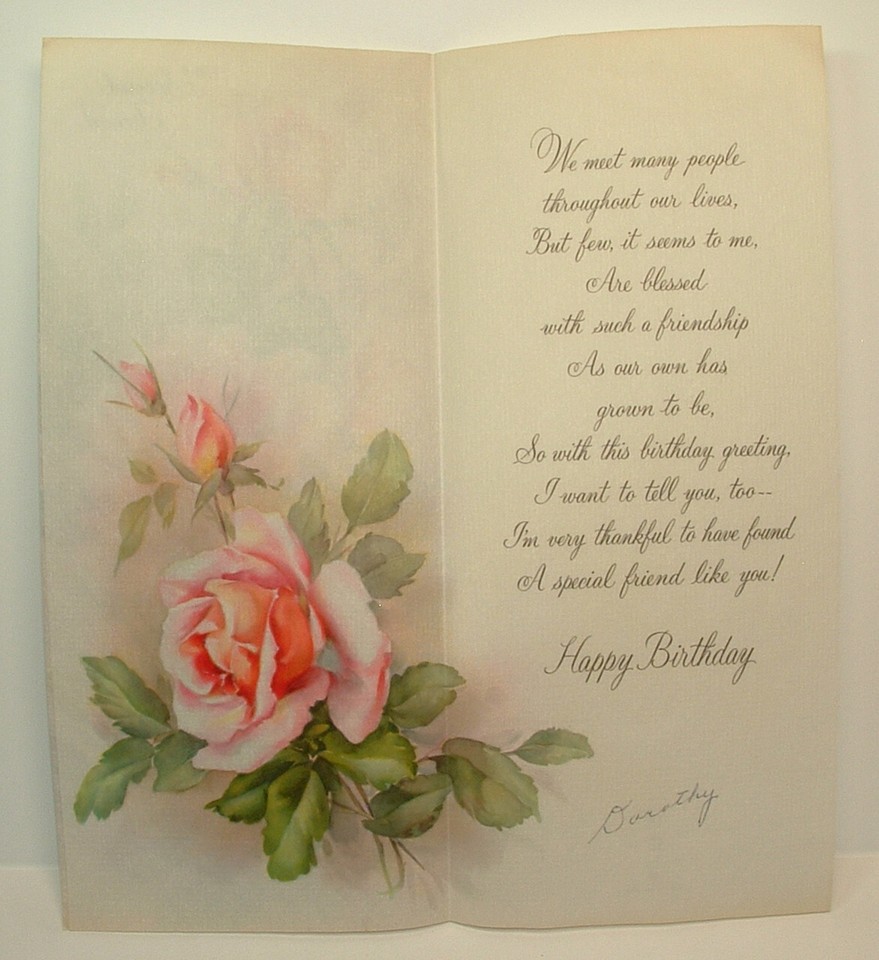 We meet many people
throughout our lives,
But few, it seems to me,
Are blessed
with such a friendship
As our own has
grown to be,
So with this birthday greeting,
I want to tell you, too--
I'm very thankful to have found
A special friend like you!
Happy Birthday
Dorothy